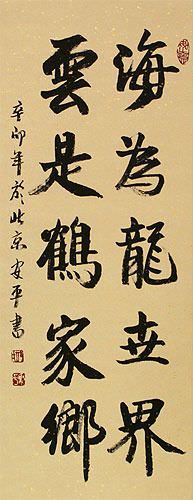 海為龍世界
雲是鶴家鄉
辛卯年於北京安平書